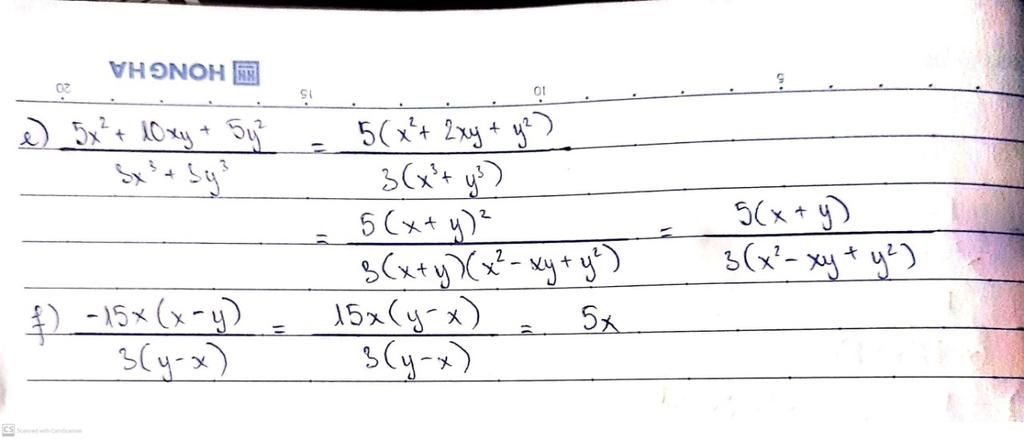 HONG HA
20 15 10 5
e) (5x² + 10xy + 5y²)/(3x³ + 3y³) = 5(x² + 2xy + y²)/3(x³ + y³)
= 5(x + y)²/3(x+y)(x² - xy + y²) = 5(x + y)/3(x² - xy + y²)
f) -15x(x - y)/3(y - x) = 15x(y - x)/3(y - x) = 5x
CS Scanned with CamScanner